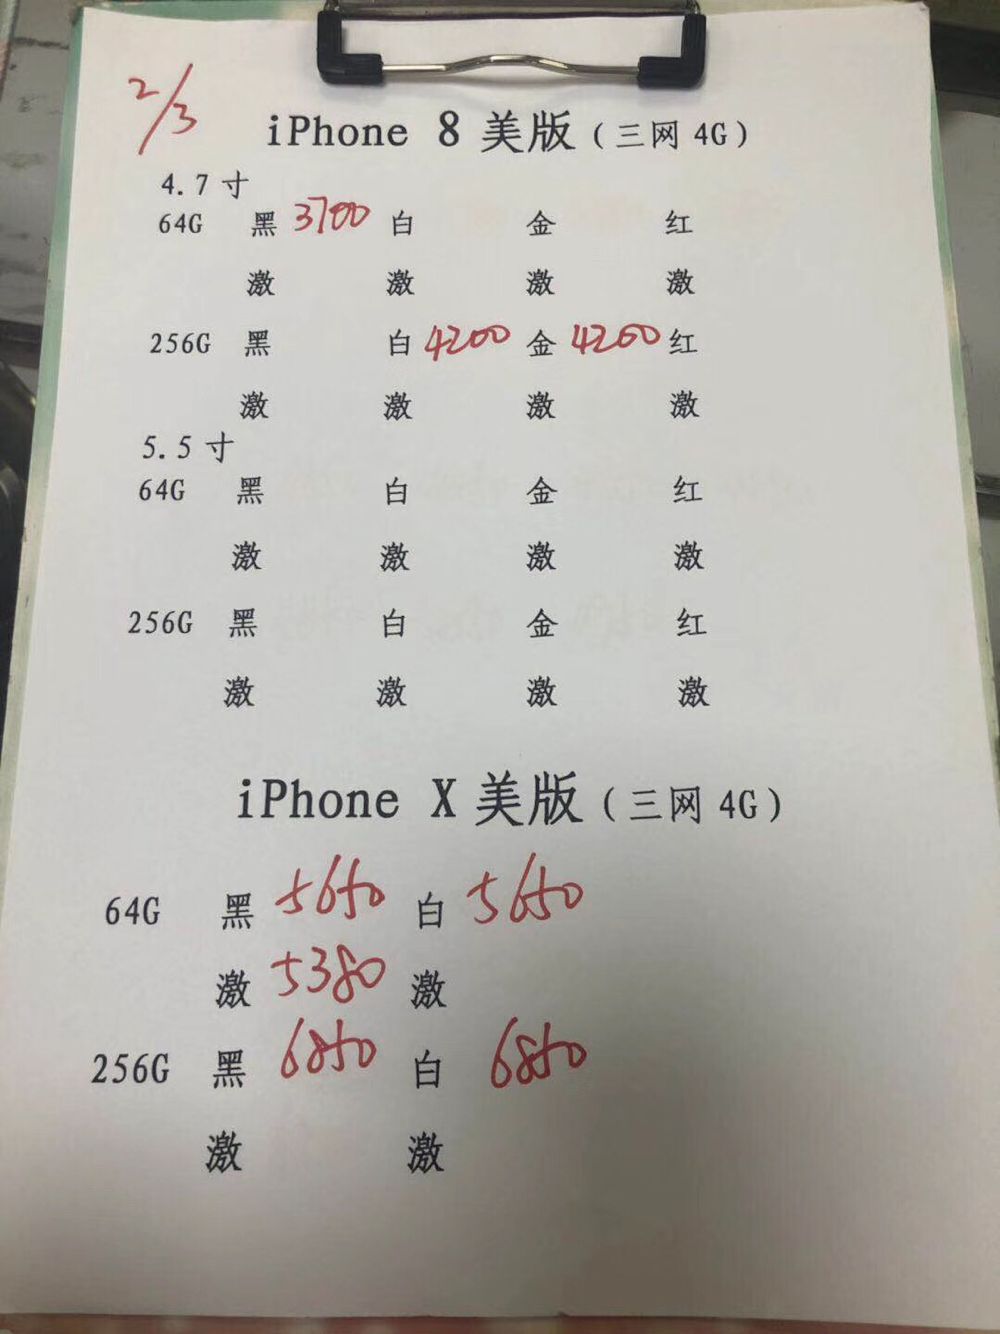 2/3
iPhone 8 美版(三网 4G)
4.7 寸
64G 黑 3700 白 金 红
激 激 激 激
256G 黑 白 4200 金 4200 红
激 激 激 激
5.5 寸
64G 黑 白 金 红
激 激 激 激
256G 黑 白 金 红
激 激 激 激
iPhone X 美版(三网 4G)
64G 黑 5650 白 5650
激 5380 激
256G 黑 6850 白 6850
激 激